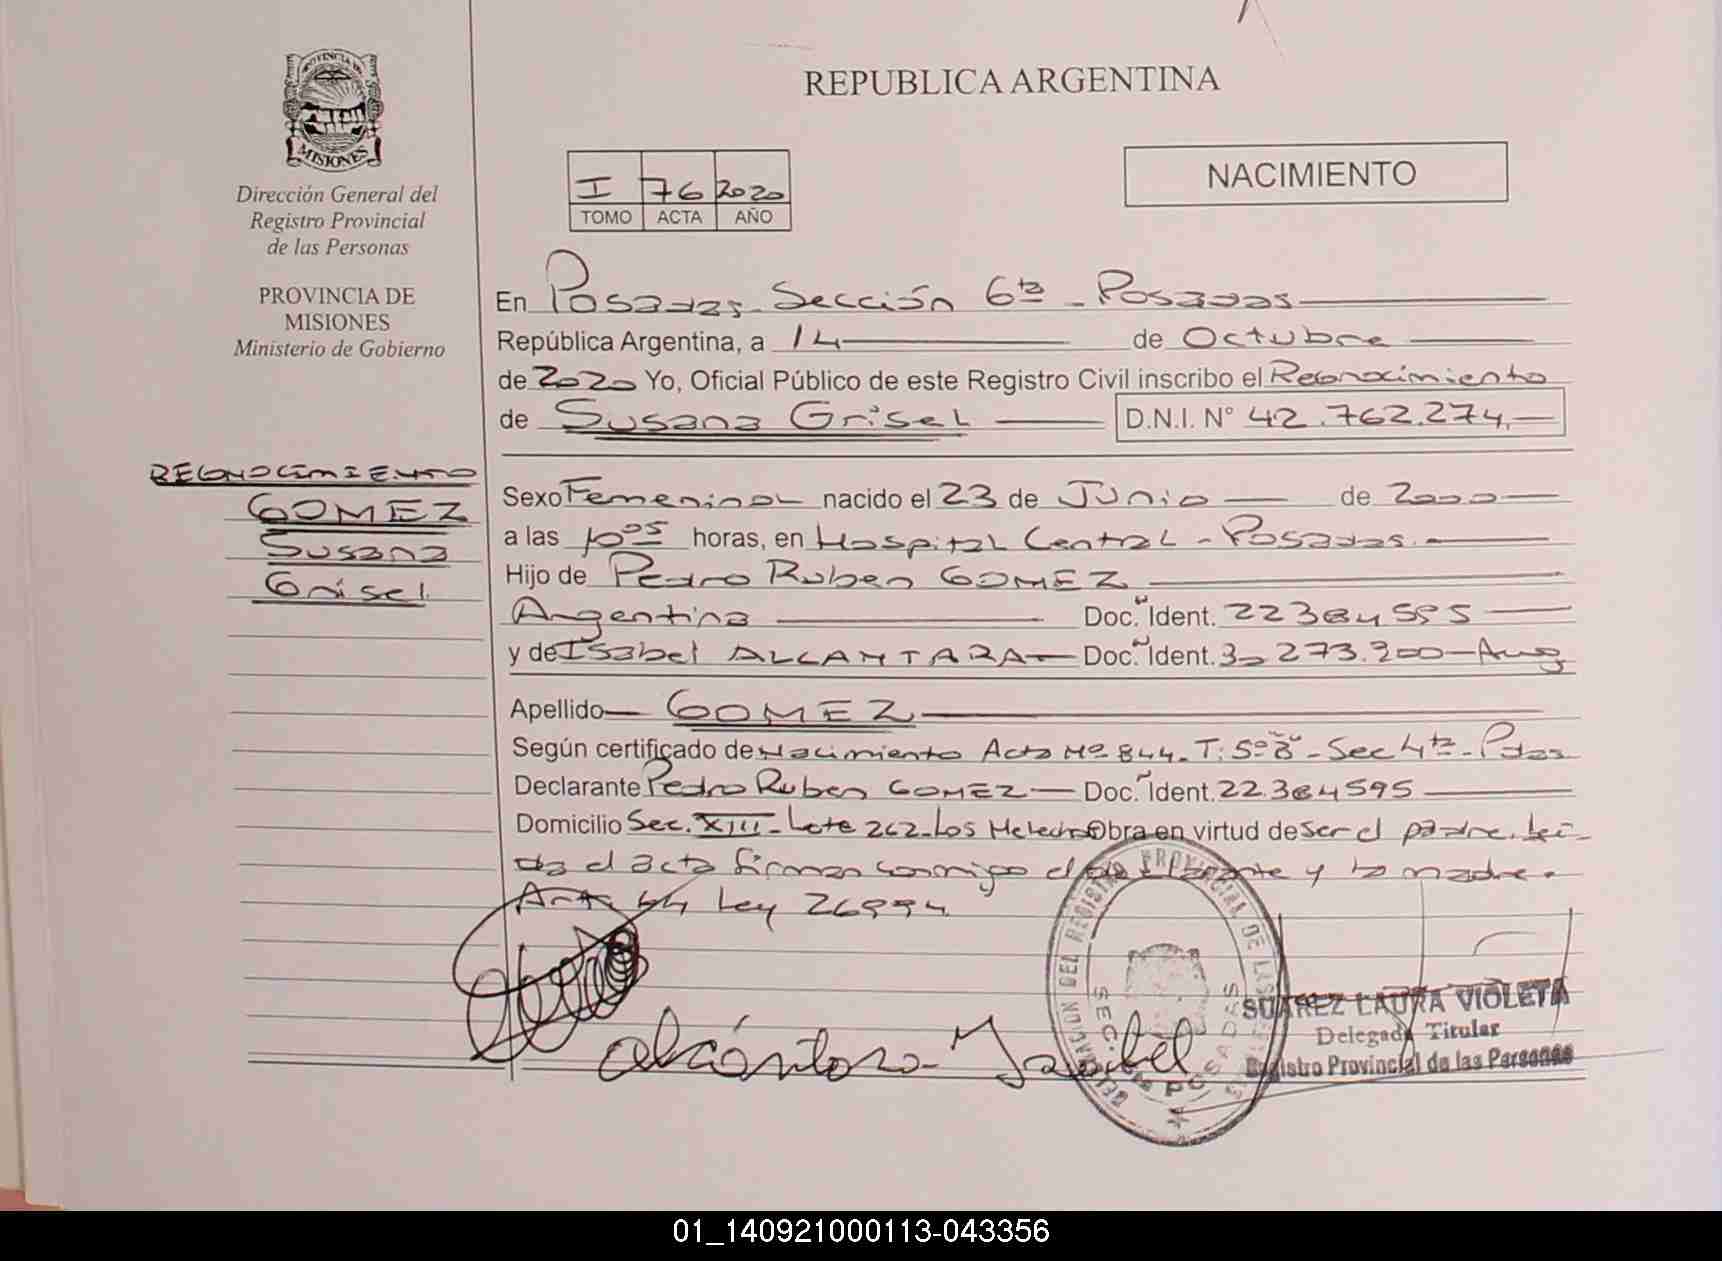 PROVINCIA DE
MISIONES
Dirección General del
Registro Provincial
de las Personas
PROVINCIA DE
MISIONES
Ministerio de Gobierno
RECONOCIMIENTO
GOMEZ
Susana
Grisel
REPUBLICA ARGENTINA
I 76 2020
TOMO ACTA AÑO
NACIMIENTO
En Posadas - Sección 6ta - Posadas
República Argentina, a 14 de Octubre
de 2020 Yo, Oficial Público de este Registro Civil inscribo el Reconocimiento
de Susana Grisel D.N.I. N° 42.762.274.-
Sexo Femenino nacido el 23 de Junio de 2000
a las 10 05 horas, en Hospital Central - Posadas.
Hijo de Pedro Ruben GOMEZ
Argentina Doc. Ident. 22384595
y de Isabel ALCANTARA Doc. Ident. 30 273.200 - Arg
Apellido GOMEZ
Según certificado de Nacimiento Acta Nº 844 - T: 5º - Sec 4ta - Pdas
Declarante Pedro Ruben GOMEZ Doc. Ident. 22.384595
Domicilio Sec. XIII - Lote 262 - Los Helechos Obra en virtud de ser el padre. Leí-
da el acta firman conmigo el declarante y la madre.
Art. 44 Ley 26994
Alcántara Isabel
DELEGACION DEL REGISTRO PROVINCIAL DE LAS PERSONAS
SEC. 6ta POSADAS
SUAREZ LAURA VIOLETA
Delegada Titular
Registro Provincial de las Personas
01_140921000113-043356